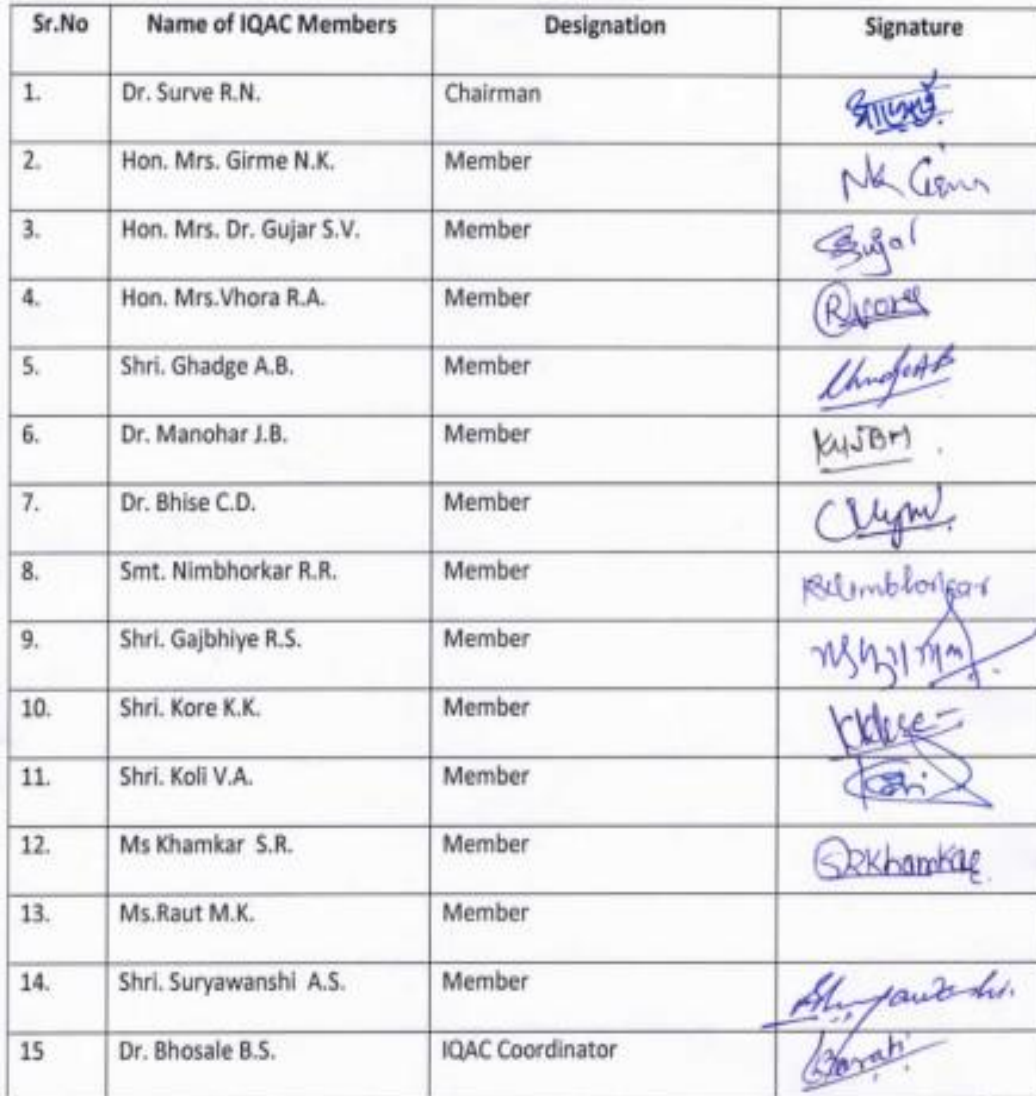 Sr.No Name of IQAC Members Designation Signature
1. Dr. Surve R.N. Chairman
2. Hon. Mrs. Girme N.K. Member
3. Hon. Mrs. Dr. Gujar S.V. Member
4. Hon. Mrs.Vhora R.A. Member
5. Shri. Ghadge A.B. Member
6. Dr. Manohar J.B. Member
7. Dr. Bhise C.D. Member
8. Smt. Nimbhorkar R.R. Member
9. Shri. Gajbhiye R.S. Member
10. Shri. Kore K.K. Member
11. Shri. Koli V.A. Member
12. Ms Khamkar S.R. Member SRKhamkar
13. Ms.Raut M.K. Member
14. Shri. Suryawanshi A.S. Member
15 Dr. Bhosale B.S. IQAC Coordinator